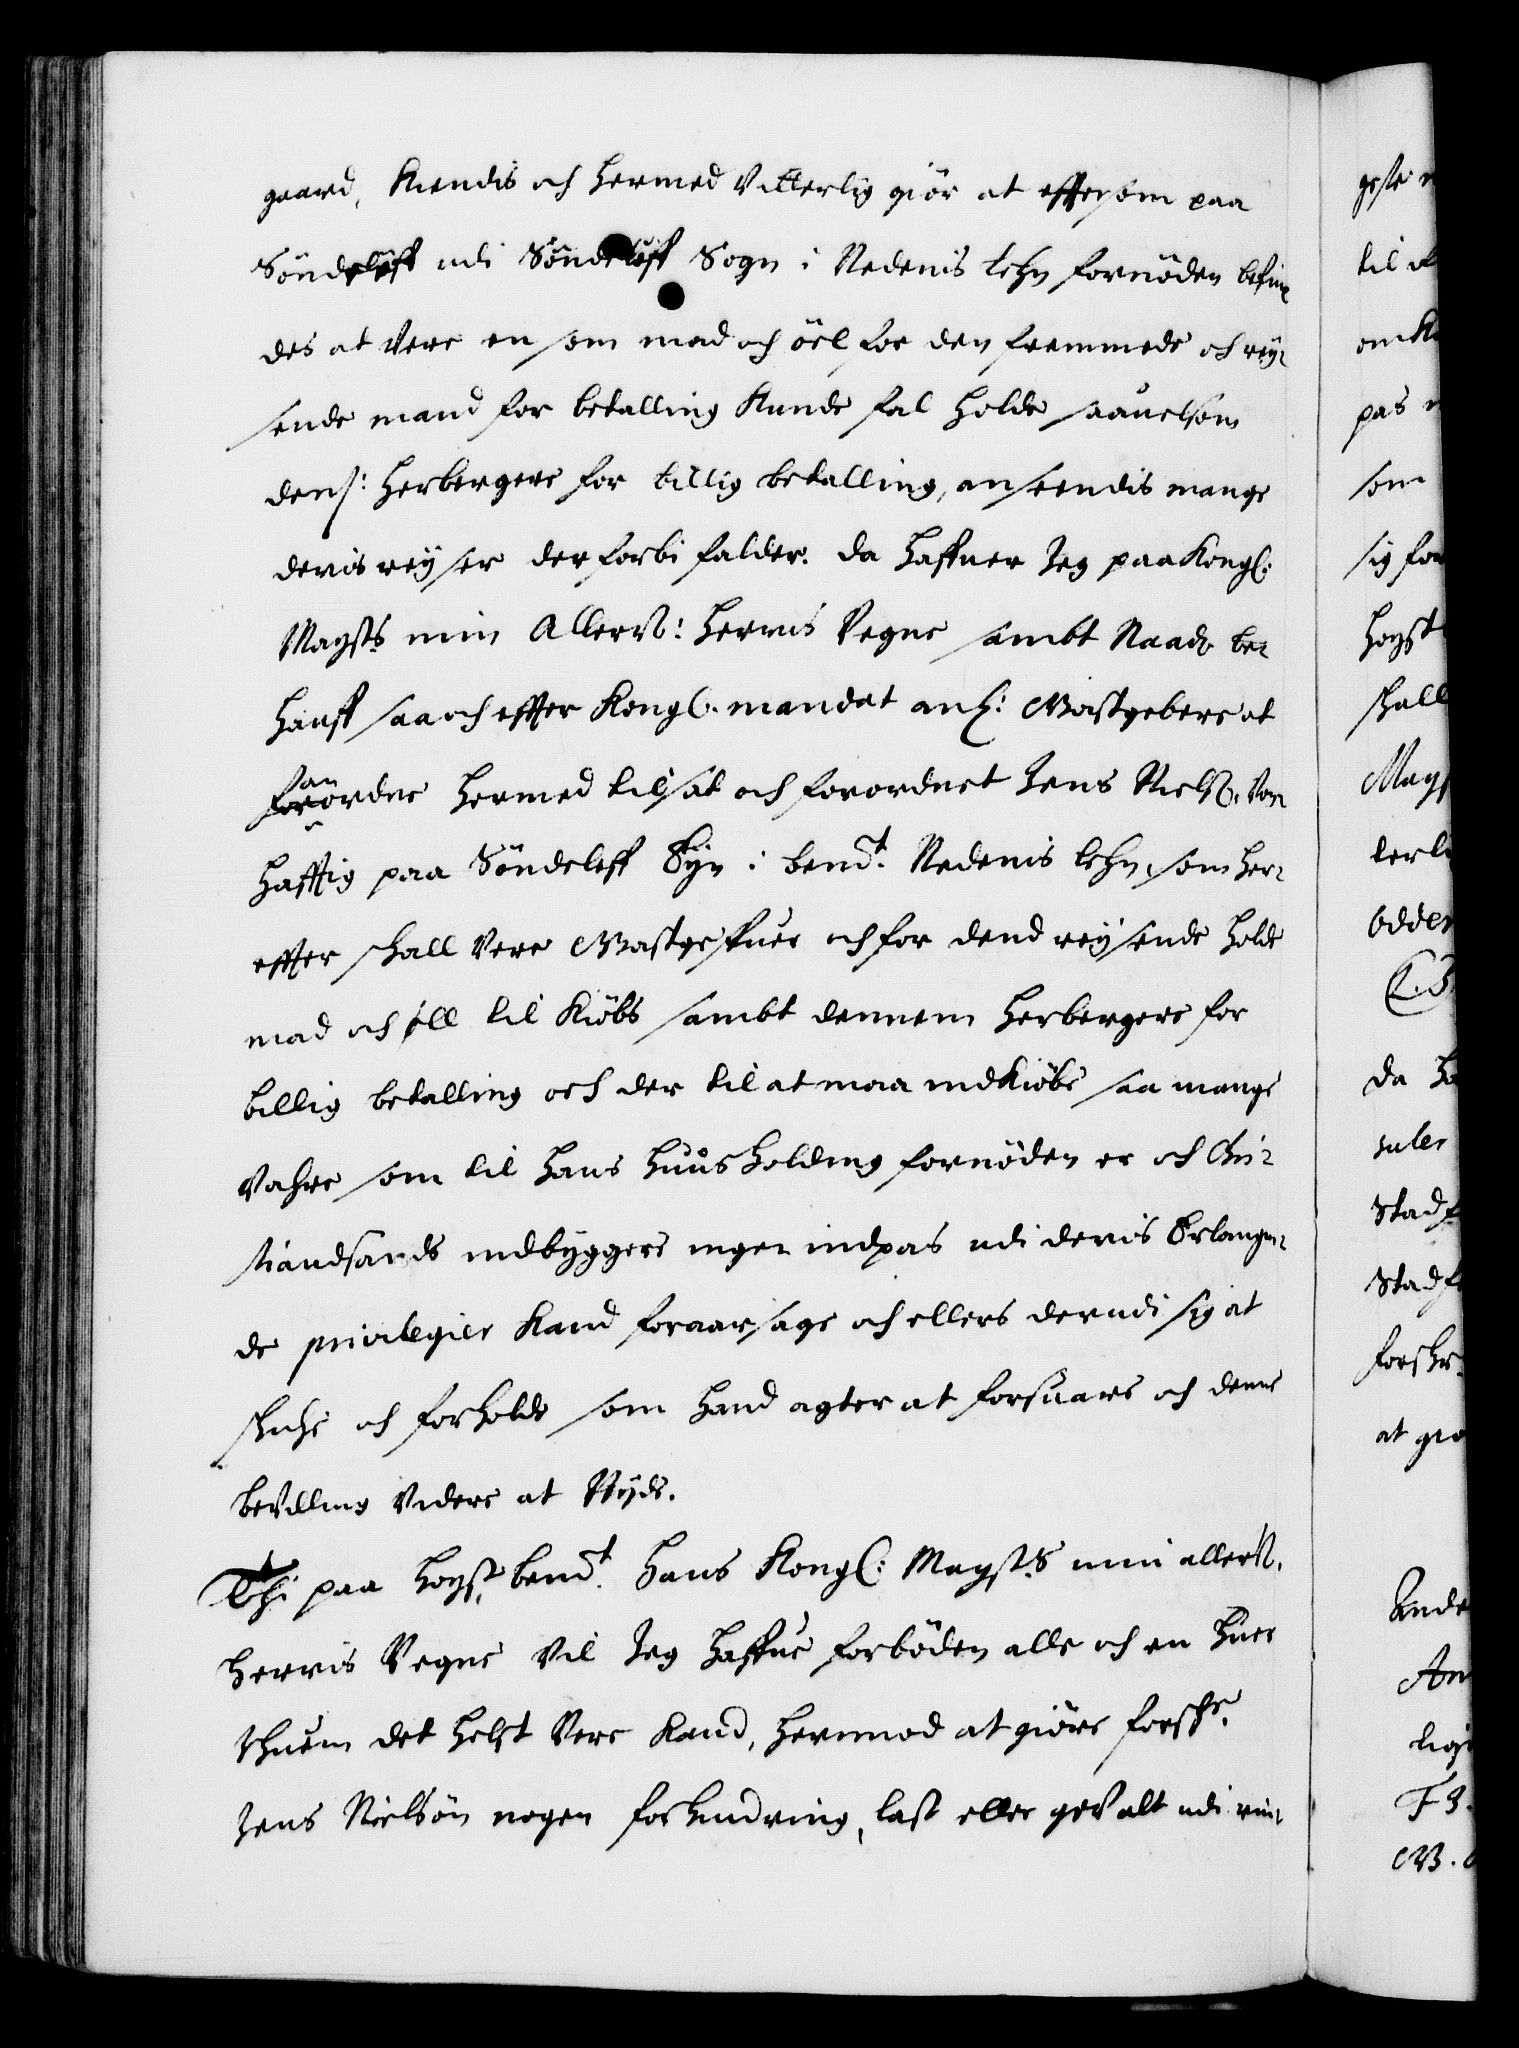 gaard, Kiendis och hermed Vitterlig giör at effterom paa
Söndeløff udi Söndeløff Sogn i Nedenis lehn fornöden befin¬
des at Vere en som mad och öel for den fremmede och rey¬
sende mand for betalling Kunde fal holde saauelsom
dens: herbergere for billig betalling, anseendis mange
deris reyser der forbi falder. da haffuer Jeg paa Kongl:
Maysts min Allern: herris Vegne sambt Naads be¬
hauff saa och effter Kongl. mandat anl: Giestgebere at
anordne hermed tilsat och forordnet Jens Niels: Von
hafftig paa Söndeleff Byn i bemt. Nedenis lehn, som her¬
effter schall Vere Giestgeffuer och for dend reysende holde
mad och øll til Kiöbs sambt dennem herbergere for
billig betalling och der til at maa indkiöbe saa mange
Vahre som til hans huusholding fornöden er och Chri¬
stiandsands indbyggere ingen indpas udi deris Erlangen¬
de privilegier Kand foraarsage och ellers derudi sig at
schiche och forholde som hand agter at forsuare och denne
beVilling Videre at Nyde.
Thi paa høyst bemt. Hans Kongl: Maysts min allern.
herris Vegne Vil Jeg haffue forböden alle och en huer
ihuem det helst Vere Kand, hermod at giöre forschr.
Jens Nielsön nogen forhindring, last eller geValt udi rin¬
til
om
pas
som
sig for
høyst
schall
Da
Stad
Stad
forschr.
at giö